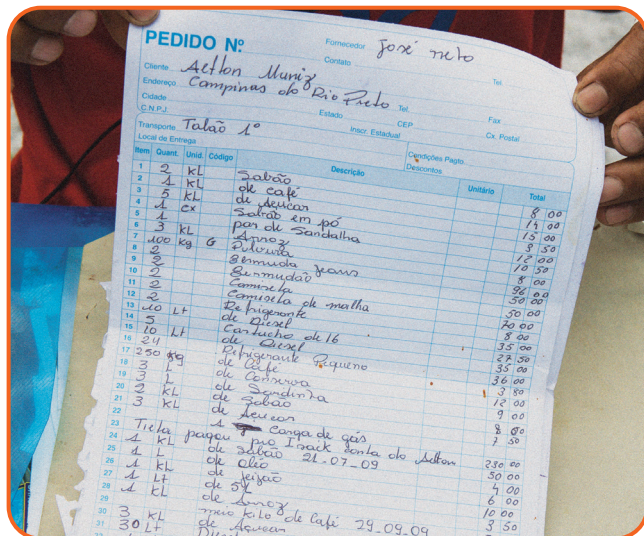 PEDIDO Nº
Fornecedor José neto
Contato
Tel.
Cliente Aelton Muniz
Endereço Campinas do Rio Preto Tel. Fax
Cidade Estado CEP Cx. Postal
C.N.P.J. Inscr. Estadual
Transporte Talão 1º Condições Pagto.
Local de Entrega Descontos
Item Quant. Unid. Código Descrição Unitário Total
1 2 KL Sabão 8 00
2 1 KL de café 14 00
3 5 KL de Açucar 15 00
4 1 cx Sabão em pó 3 50
5 1 par de Sandalha 12 00
6 3 KL Arroz 10 50
7 100 Kg G 8 00
8 2 Bermuda jeans 96 00
9 2 Bermudão 50 00
10 2 Camiseta 50 00
11 2 Camiseta de malha 70 00
12 2 Refrigerante 8 00
13 10 Lt de Diesel 35 00
14 5 Cartucho de 16 27 50
15 10 Lt de Diesel 35 00
16 24 Refrigerante Pequeno 36 00
17 250 Kg de Café 3 80
18 3 L de Conserva 12 00
19 3 L de Sardinha 9 00
20 2 KL de Sabão 8 00
21 3 KL de Açucar 7 50
22 1 Carga de gás
23 pagou pro Isack conta do Aelton 230 00
24 1 KL de Sabão 21-07-09 50 00
25 1 L de oleo 4 00
26 1 KL de feijão 6 00
27 1 Lt de 51 10 00
28 1 KL de Arroz 3 50
29 meio kilo de Café 29-09-09
30 3 KL de Açucar
31 30 Lt